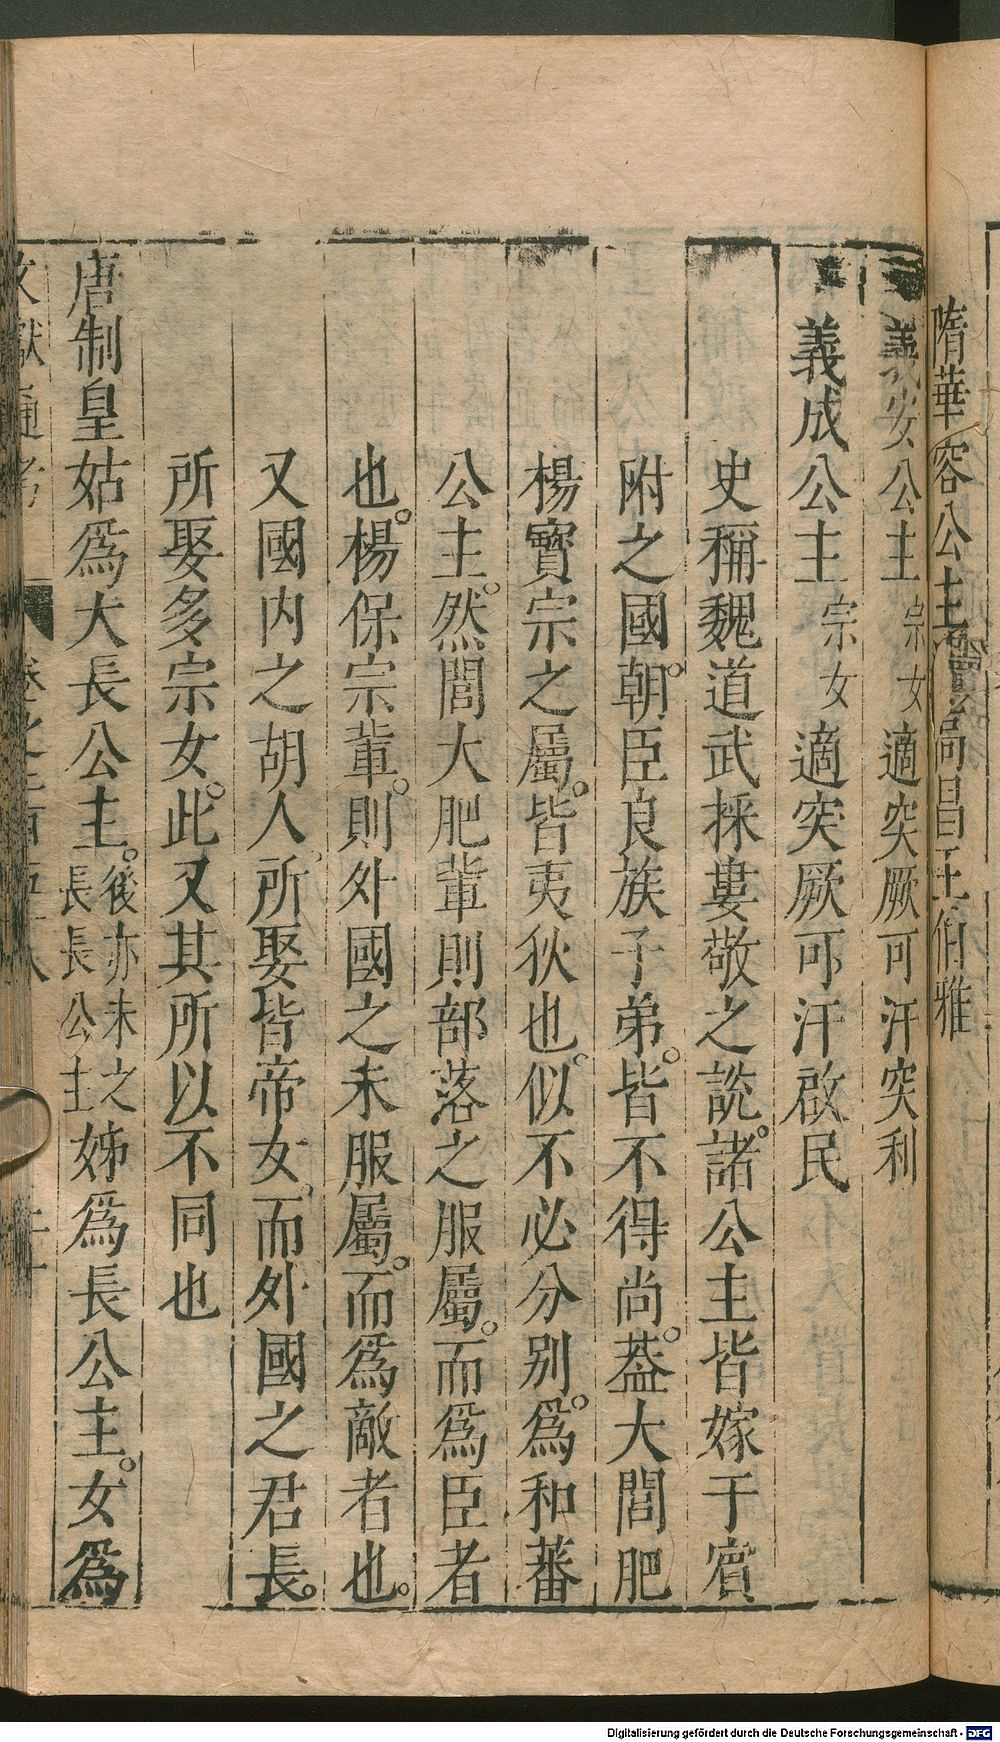 隋華容公主 高昌王伯雅
義安公主宗女適突厥可汗突利
義成公主宗女適突厥可汗啟民
史稱魏道武採婁敬之說諸公主皆嫁于賓
附之國朝臣良族子弟皆不得尚葢大閭肥
楊寶宗之屬皆夷狄也似不必分別為和蕃
公主然閭大肥輩則部落之服屬而為臣者
也楊保宗輩則外國之未服屬而為敵者也
又國內之胡人所娶皆帝女而外國之君長
所娶多宗女此又其所以不同也
唐制皇姑為大長公主後亦未之長長公主姊為長公主女為
文獻通考 卷之二百五十八
Digitalisierung gefördert durch die Deutsche Forschungsgemeinschaft - DFG